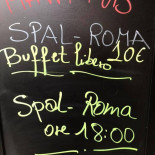 SPAL - ROMA
Buffet libero 10€
Spal - Roma
ore 18:00